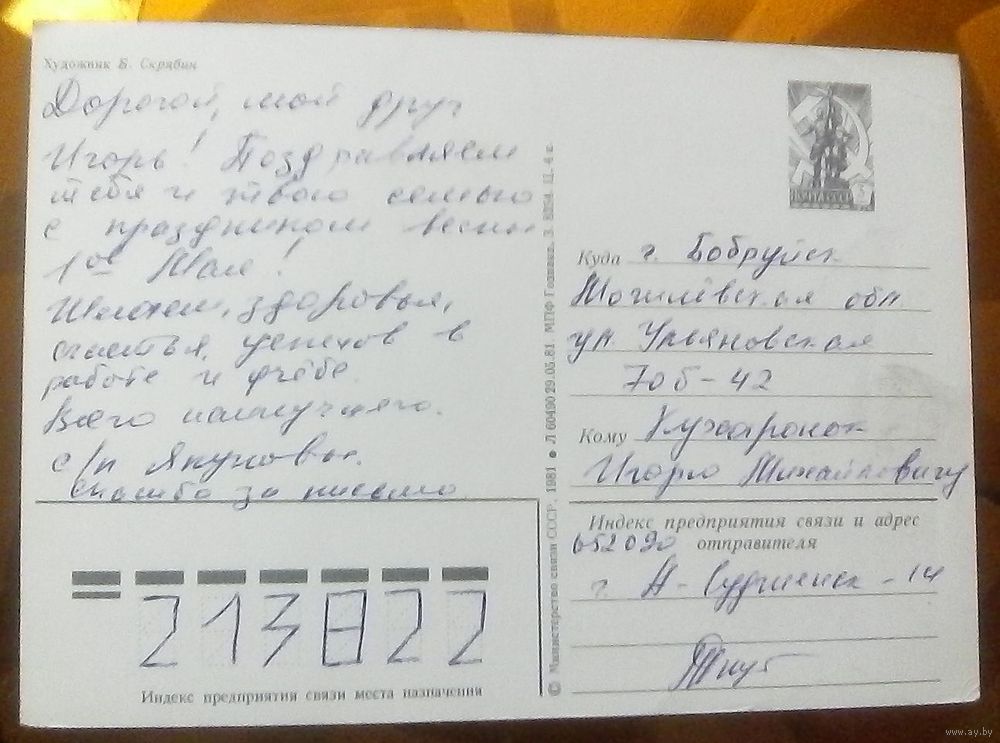 Художник Б. Скрябин
Дорогой, мой друг
Игорь! Поздравляем
тебя и твою семью
с праздником весны
1ое Мая!
Желаем, здоровья,
счастья, успехов в
работе и учёбе.
Всего наилучшего.
с/п Якуновы.
спасибо за письмо.
213822
Индекс предприятия связи места назначения
© Министерство связи СССР. 1981 ● Л 60490 29.05.81 МПФ Гознака. З. Ц. 4 к.
ПОЧТА СССР
Куда г. Бобруйск
Могилёвская обл
ул Ульяновская
70б-42
Кому Кухаронок
Игорю Михайловичу
Индекс предприятия связи и адрес
отправителя
652090
г. А-Судженск-14
www.ay.by